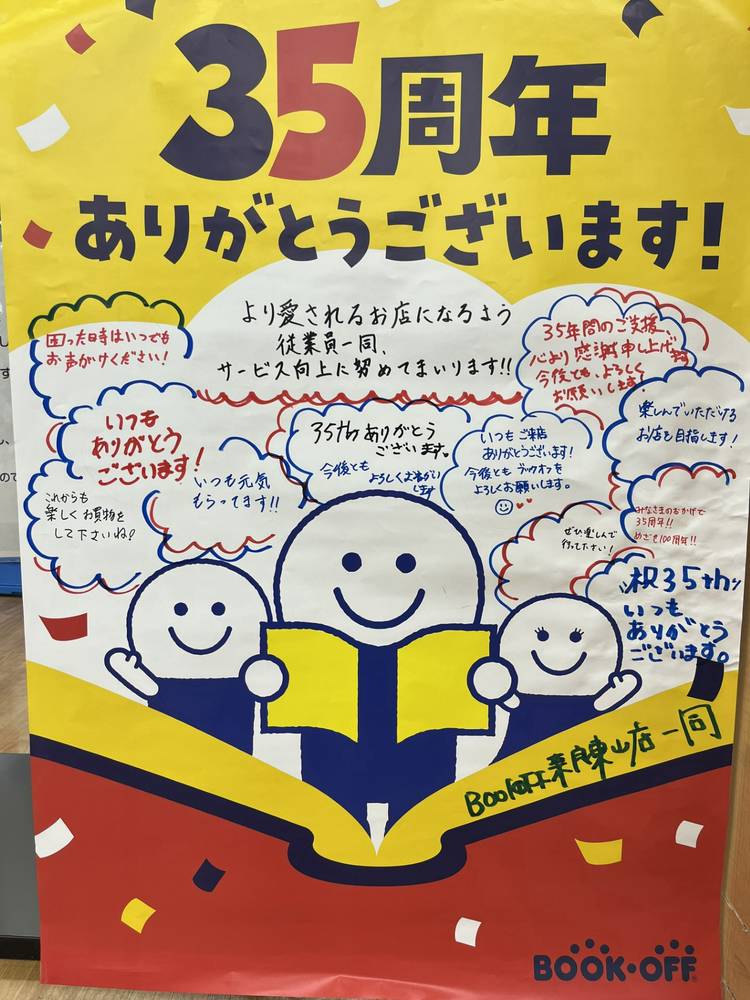 35周年
ありがとうございます!
より愛されるお店になるよう
従業員一同、
サービス向上に努めてまいります!!
困った時はいつでも
お声がけください!
35年間のご支援、
心より感謝申し上げます
今後とも、よろしく
お願いします!
いつも
ありがとう
ございます!
35thありがとう
ございます。
今後とも
よろしくお願いします
いつもご来店
ありがとうございます!
今後ともブックオフを
よろしくお願いします。
楽しんでいただける
お店を目指します!
いつも元気
もらってます!!
これからも
楽しくお買物を
して下さいね!
ぜひ楽しんで
行ってださい!
みなさまのおかげで
35周年!!
めざせ100周年!!
祝35th
いつも
ありがとう
ございます。
BOOKOFF東山店一同
BOOK・OFF